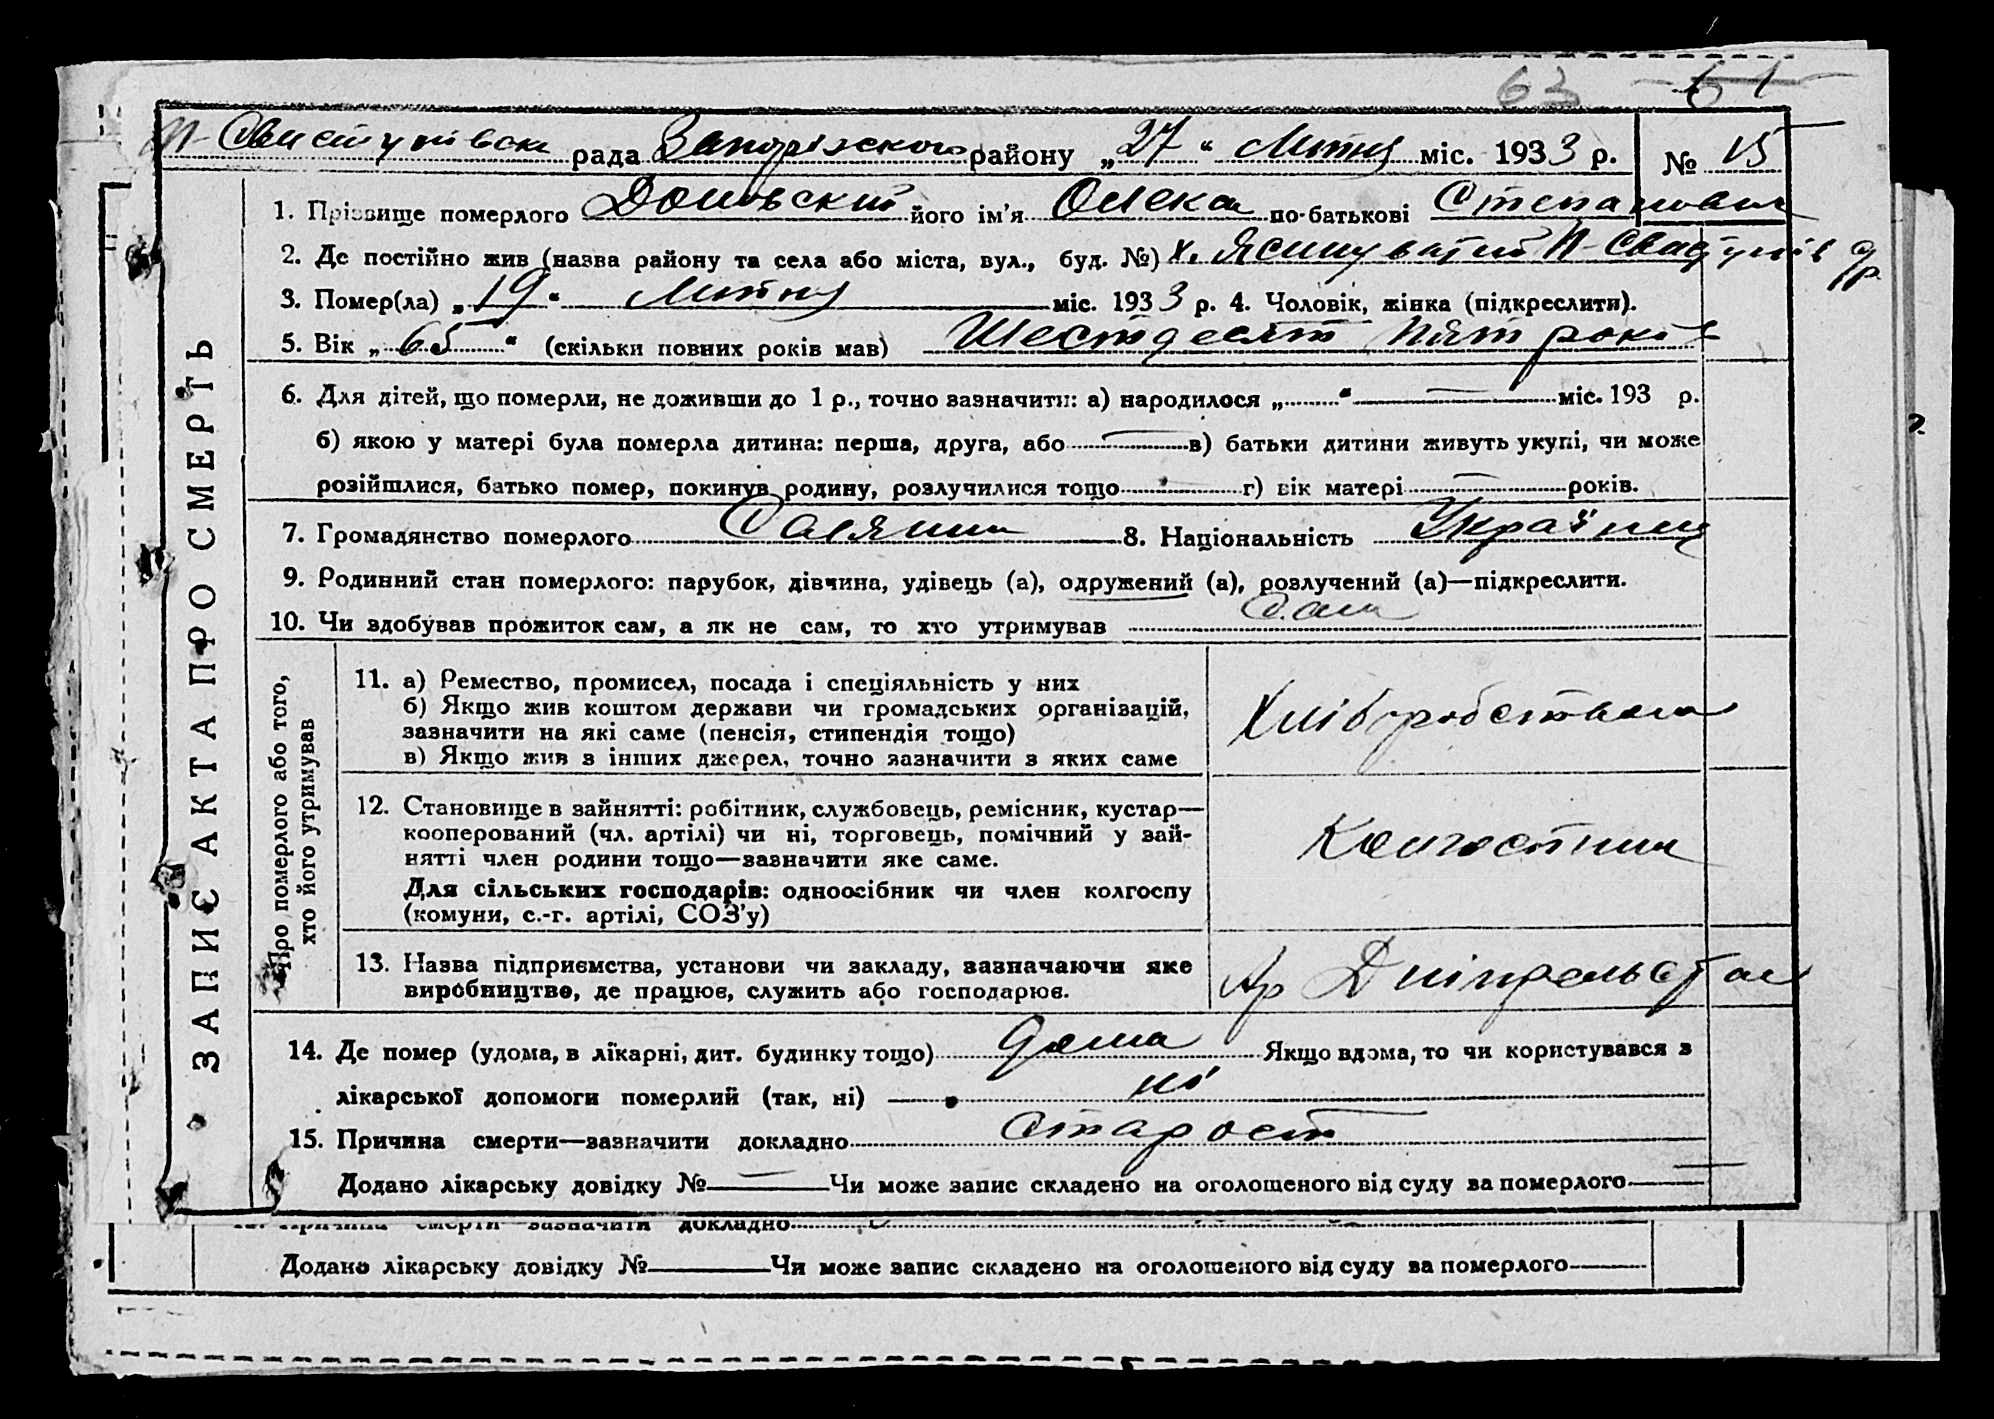 63 61
П-Свистунівська рада Запорізского району „27“ Лютня міс. 1933 р. № 15
1. Прізвище померлого його ім'я Олекса по-батькові Степанович
2. Де постійно жив (назва району та села або міста, вул., буд. №) х. Ясинуватий П-Свистунів
3. Помер(ла) „19“ Лютня міс. 1933 р. 4. Чоловік, жінка (підкреслити).
5. Вік „65“ (скільки повних років мав) Шестдесят пят років
6. Для дітей, що померли, не доживши до 1 р., точно зазначити: а) народилося „ “ міс. 193 р.
б) якою у матері була померла дитина: перша, друга, або в) батьки дитини живуть укупі, чи може
розійшлися, батько помер, покинув родину, розлучилися тощо г) вік матері років.
7. Громадянство померлого 8. Національність Україниц
9. Родинний стан померлого: парубок, дівчина, удівець (а), одружений (а), розлучений (а)—підкреслити.
10. Чи здобував прожиток сам, а як не сам, то хто утримував Сам
ЗАПИС АКТА ПРО СМЕРТЬ
Про померлого або того,
хто його утримував
11. а) Ремество, промисел, посада і спеціяльність у них
б) Якщо жив коштом держави чи громадських організацій,
зазначити на які саме (пенсія, стипендія тощо)
в) Якщо жив з інших джерел, точно зазначити з яких саме
Хліборобством
12. Становище в зайнятті: робітник, службовець, ремісник, кустар—
кооперований (чл. артілі) чи ні, торговець, помічний у зай-
нятті член родини тощо—зазначити яке саме.
Для сільських господарів: одноосібник чи член колгоспу
(комуни, с.-г. артілі, СОЗ'у)
Колгостник
13. Назва підприємства, установи чи закладу, зазначаючи яке
виробництво, де працює, служить або господарює.
Ар Дніпрельстан
14. Де помер (удома, в лікарні, дит. будинку тощо) дома Якщо вдома, то чи користувався з
лікарської допомоги померлий (так, ні) ні
15. Причина смерти—зазначити докладно старост
Додано лікарську довідку № Чи може запис складено на оголошеного від суду за померлого
15. Причина смерти—зазначити докладно
Додано лікарську довідку № Чи може запис складено на оголошеного від суду за померлого